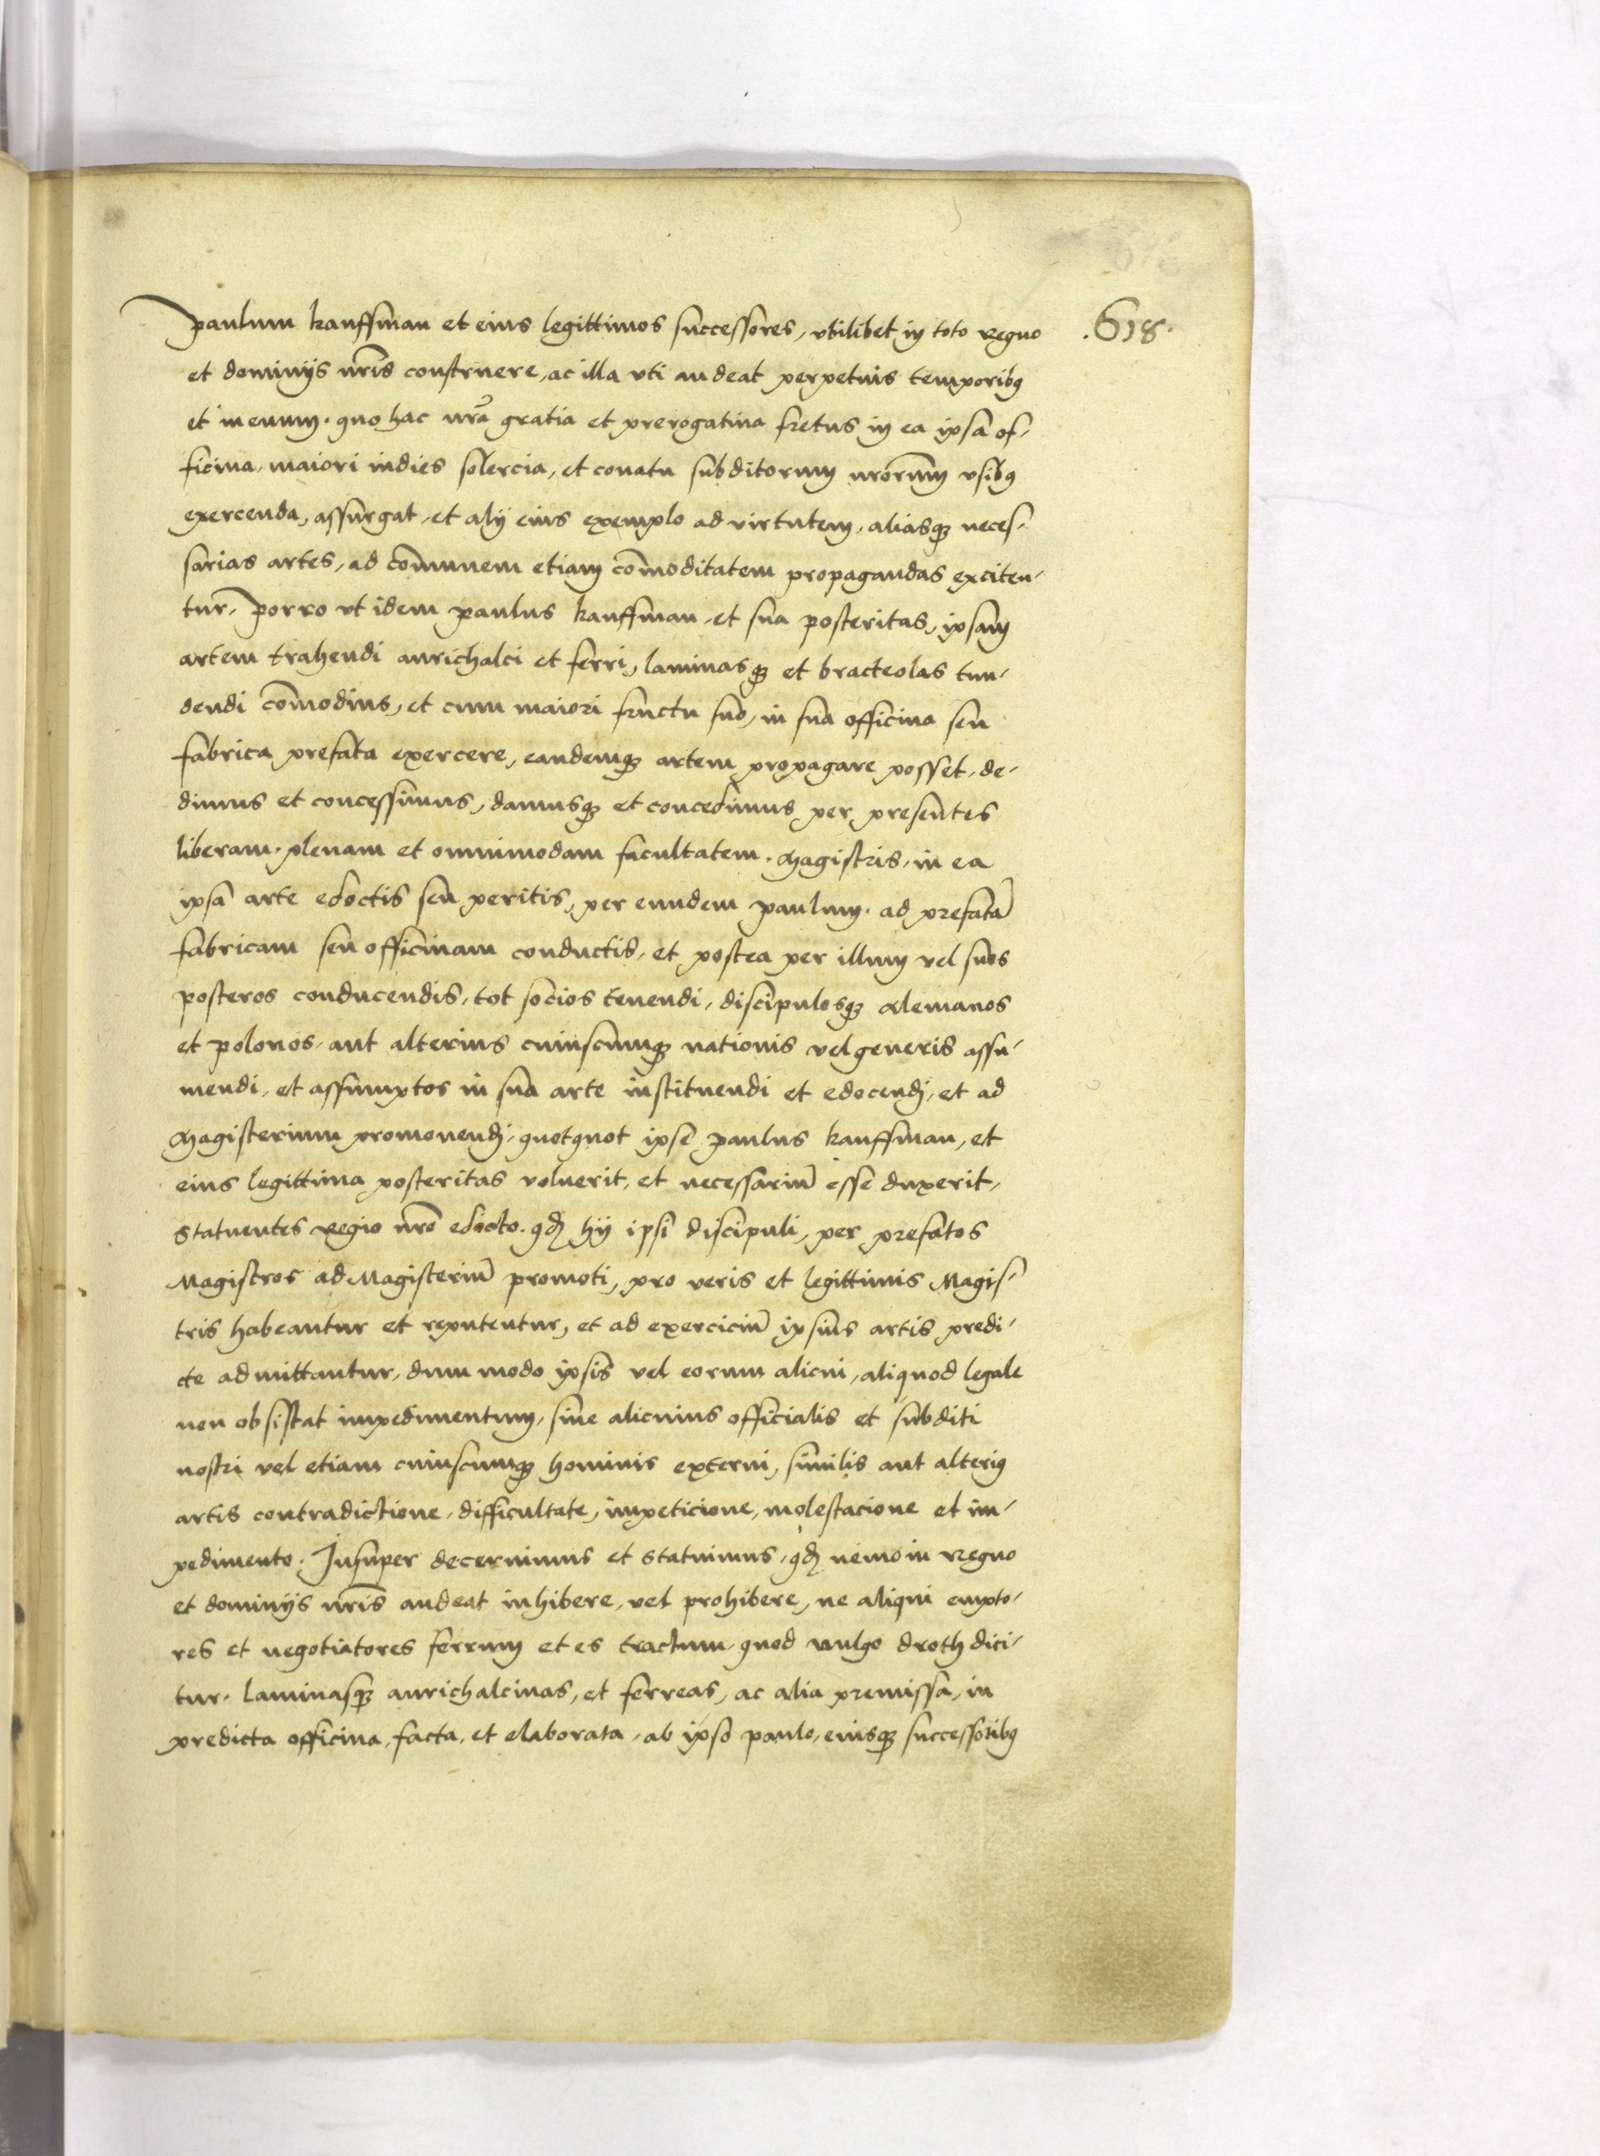 .618.
paulum kauffman et eius legittimos successores, vbilibet in toto regno
et dominijs nris construere, ac illa vti audeat perpetuis temporibus
et in euum. quo hac nra gratia et prerogatiua fretus in ea ipsa of-
ficina, maiori indies solercia, et conatu subditorum nrorum vsibus
exercenda, assurgat, et alij eius exemplo ad virtutem, aliasque neces-
sarias artes, ad communem etiam commoditatem propagandas exciten-
tur. Porro vt idem paulus kauffman, et sua posteritas, ipsam
artem trahendi aurichalci et ferri, laminasque et bracteolas tun-
dendi commodius, et cum maiori fructu suo, in sua officina seu
fabrica prefata exercere, eandemque artem propagare posset, de-
dimus et concessimus, damusque et concedimus per presentes
liberam, plenam et omnimodam facultatem. Magistris, in ea
ipsa arte edoctis seu peritis, per eundem paulum. ad prefatam
fabricam seu officinam conductis, et postea per illum vel suos
posteros conducendis, tot socios tenendi, discipulosque alemanos
et polonos, aut alterius cuiuscumque nationis vel generis assu-
mendi, et assumptos in sua arte instituendi et edocendi, et ad
Magisterium promouendi, quotquot ipse paulus kauffman, et
eius legittima posteritas voluerit, et necessarium esse duxerit,
statuentes regio nro edicto. quod hij ipsi discipuli, per prefatos
Magistros ad Magisterium promoti, pro veris et legittimis Magis-
tris habeantur et reputentur, et ad exercicium ipsius artis predi-
cte admittantur, dum modo ipsis vel eorum alicui, aliquod legale
non obsistat impedimentum, sine alicuius officialis et subditi
nostri vel etiam cuiuscumque hominis externi, similis aut alterius
artis contradictione, difficultate, impeticione, molestacione et im-
pedimento. Insuper decernimus et statuimus, quod nemo in Regno
et dominijs nris audeat inhibere, vel prohibere, ne aliqui empto-
res et negotiatores ferrum et es tractum quod vulgo droth dici-
tur. laminasque aurichalcinas, et ferreas, ac alia premissa, in
predicta officina, facta, et elaborata, ab ipso paulo, eiusque successoribus